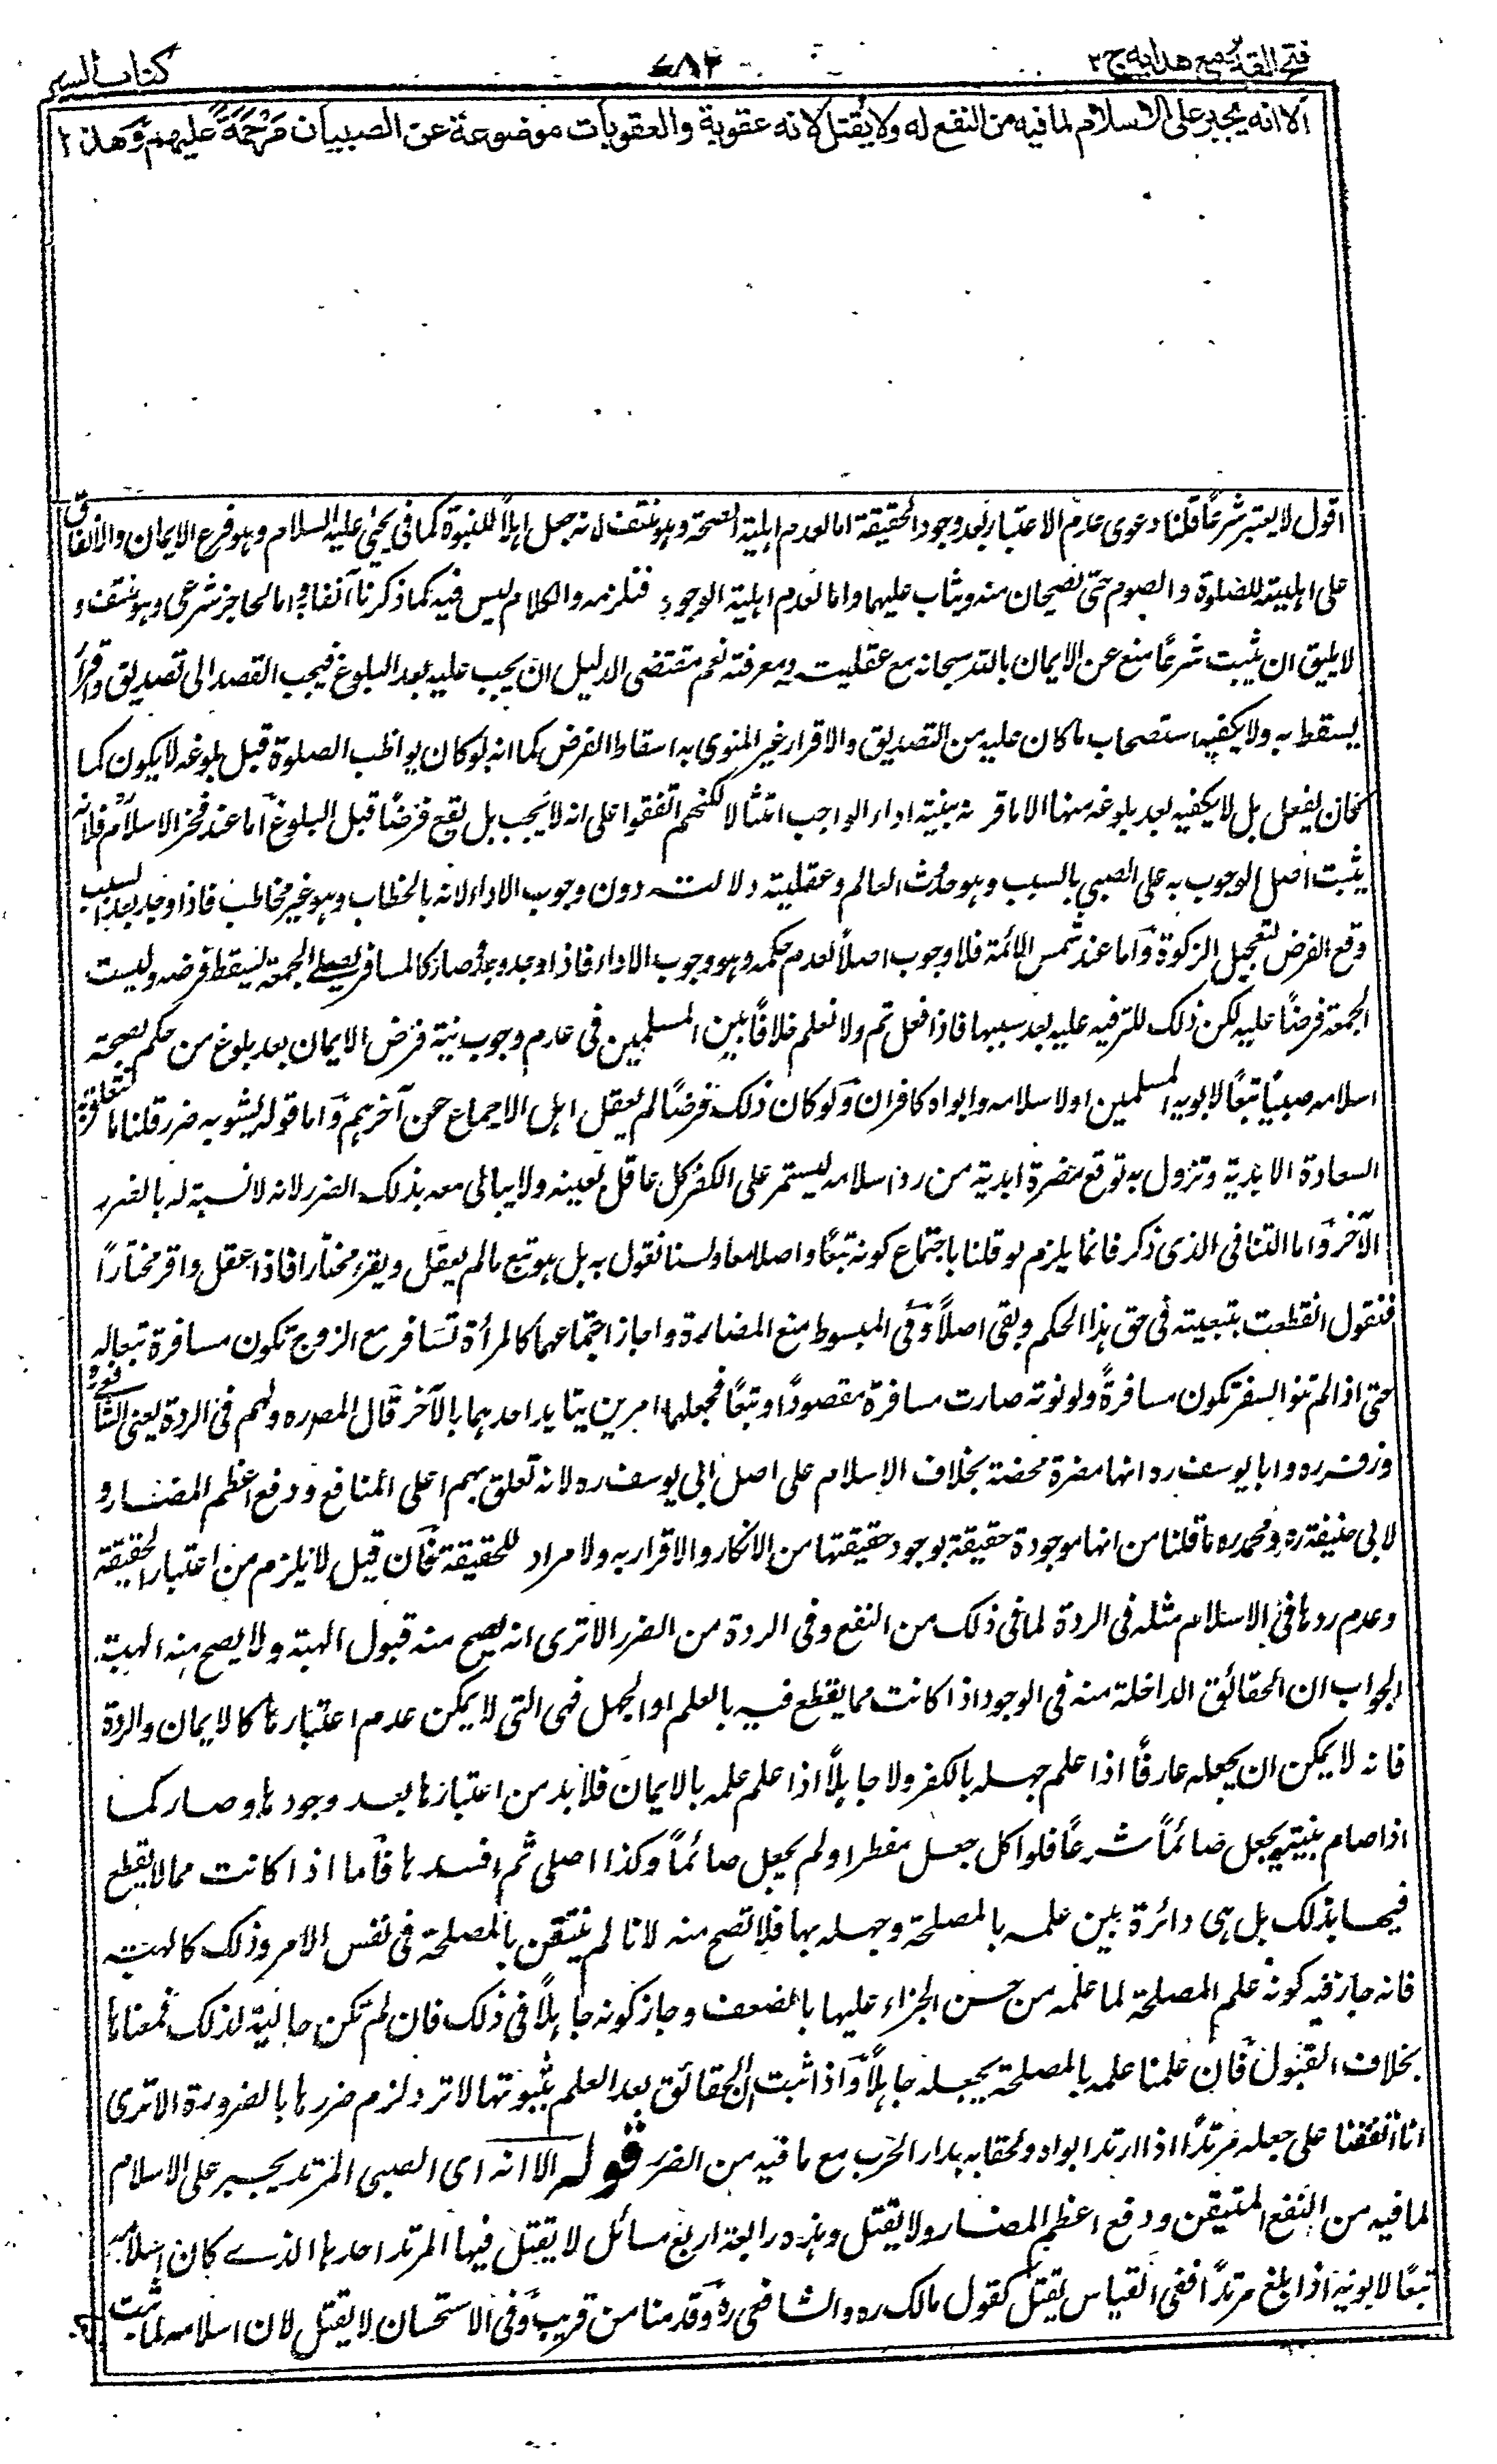 فتح القدير مع هدايه ج ٢
٧٨٢
كتاب السير
الا انه يجبر على الاسلام لما فيه من النفع له ولا يقتل لانه عقوبة والعقوبات موضوعة عن الصبيان مرحمة عليهم وهذا
اقول لا يعتبر شرعاً قلنا دعوى عدم الاعتبار بعد وجود الحقيقة اما لعدم اهلية الصحة وهو منتف لانه جعل اهلاً للنبوة كما فى يحيى عليه السلام وهو فرع الايمان والاتفاق
على اهليته للصلوة والصوم حتى يصحان منه ويثاب عليهما واما لعدم اهلية الوجوب فنلزمه والكلام ليس فيه كما ذكرنا آنفا واما لحاجز شرعى وهو منتف و
لا يليق ان يثبت شرعاً منع عن الايمان بالله سبحانه مع عقليت ومعرفته نعم مقتضى الدليل ان يجب عليه بعد البلوغ فيجب القصد الى تصديق واقرار
يسقط به ولا يكفيه استصحاب ما كان عليه من التصديق والاقرار غير المنوى به اسقاط الفرض كما انه لو كان يواظب الصلوة قبل بلوغه لا يكون كما
كان يفعل بل لا يكفيه بعد بلوغه منها الا ما قرنه بنية اداء الواجب امتثالا لكنهم اتفقوا على انه لا يجب بل يقع فرضاً قبل البلوغ اما عند فخر الاسلام فلانه
يثبت اصل الوجوب به على الصبى بالسبب وهو حدث العالم وعقلية دلالته دون وجوب الاداء لانه بالخطاب وهو غير مخاطب فاذا وجد بعد السبب
وقع الفرض كتعجيل الزكوة واما عند شمس الائمة فلا وجوب اصلاً لعدم حكمه وهو وجوب الاداء فاذا وجد وجد فصار كالمسافر يصلى الجمعة يسقط فرضه وليست
الجمعة فرضاً عليه لكن ذلك للترفيه عليه بعد سببها فاذا فعل تم ولا نعلم خلافاً بين المسلمين فى عدم وجوب نية فرض الايمان بعد بلوغ من حكم بصحة
اسلامه صبياً تبعاً لابويه المسلمين او لاسلامه وابواه كافران ولو كان ذلك فرضاً لم يغفل اهل الاجماع عن آخرهم واما قوله يشوبه ضرر قلنا ما تتعلق به
السعادة الابدية وتزول به توقع مضرة ابدية من رد اسلامه ليستمر على الكفر كل عاقل يعينه ولا يبالى معه بذلك الضرر لانه لا نسبة له بالضرر
الآخر واما التنافى الذى ذكر فانما يلزم لو قلنا باجتماع كونه تبعاً واصلا معا ولسنا نقول به بل هو تبع ما لم يعقل ويقر مختاراً فاذا عقل واقر مختاراً
فنقول انقطعت تبعيته فى حق هذا الحكم وبقى اصلاً وفى المبسوط منع المضادة واجاز اجتماعهما كالمرأة تسافر مع الزوج تكون مسافرة تبعا له
حتى اذا لم تنو السفر تكون مسافرة ولو نوته صارت مسافرة مقصوداً وتبعاً فجعلهما امرين يتايد احدهما بالآخر قال المصره ولهم فى الردة يعنى الشافعى ره
وزفر ره وابا يوسف ره انها مضرة محضة بخلاف الاسلام على اصل ابى يوسف ره لانه تعلق بهم اعلى المنافع ودفع اعظم المضار و
لابى حنيفة ره ومحمد ره ما قلنا من انها موجودة حقيقة بوجود حقيقتها من الانكار والاقرار به ولا مراد للحقيقة فان قيل لا يلزم من اعتبار الحقيقة
وعدم ردها فى الاسلام مثله فى الردة لما فى ذلك من النفع وفى الردة من الضرر الا ترى انه يصح منه قبول الهبة ولا يصح منه الهبة
الجواب ان الحقائق الداخلة منه فى الوجود اذا كانت مما يقطع فيه بالعلم او الجهل فهى التى لا يمكن عدم اعتبارها كالايمان والردة
فانه لا يمكن ان يجعله عارفاً اذا علم جهله بالكفر ولا جاهلاً اذا علم علمه بالايمان فلا بد من اعتبارها بعد وجودها وصار كما
اذا صام بنية يجعل صائماً شرعاً فلو اكل جعل مفطرا ولم يجعل صائماً وكذا اصلى ثم افسدها فاما اذا كانت مما لا يقطع
فيها بذلك بل هى دائرة بين علمه بالمصلحة وجهله بها فلا تصح منه لانا لم نتيقن بالمصلحة فى نفس الامر وذلك كالهبة
فانه جاز فيه كونه علم المصلحة لما علمه من حسن الجزاء عليها بالضعف وجاز كونه جاهلاً فى ذلك فان لم تكن جالية لذلك فمعناها
بخلاف القبول فان علمنا علمه بالمصلحة يجعله جاهلاً واذا ثبت ان الحقائق بعد العلم بثبوتها لا ترد لزم ضررها بالضرورة الا ترى
انا اتفقنا على جعله مرتداً اذا ارتد ابواه ولحقا به بدار الحرب مع ما فيه من الضرر قوله الا انه اى الصبى المرتد يجبر على الاسلام
لما فيه من النفع المتيقن ودفع اعظم المضار ولا يقتل وهذه رابعة اربع مسائل لا يقتل فيها المرتد احدها الذى كان اسلامه
تبعاً لابويه اذا بلغ مرتداً ففى القياس يقتل كقول مالك ره والشافعى ره وقدمنا من قريب وفى الاستحسان لا يقتل لان اسلامه لما ثبت